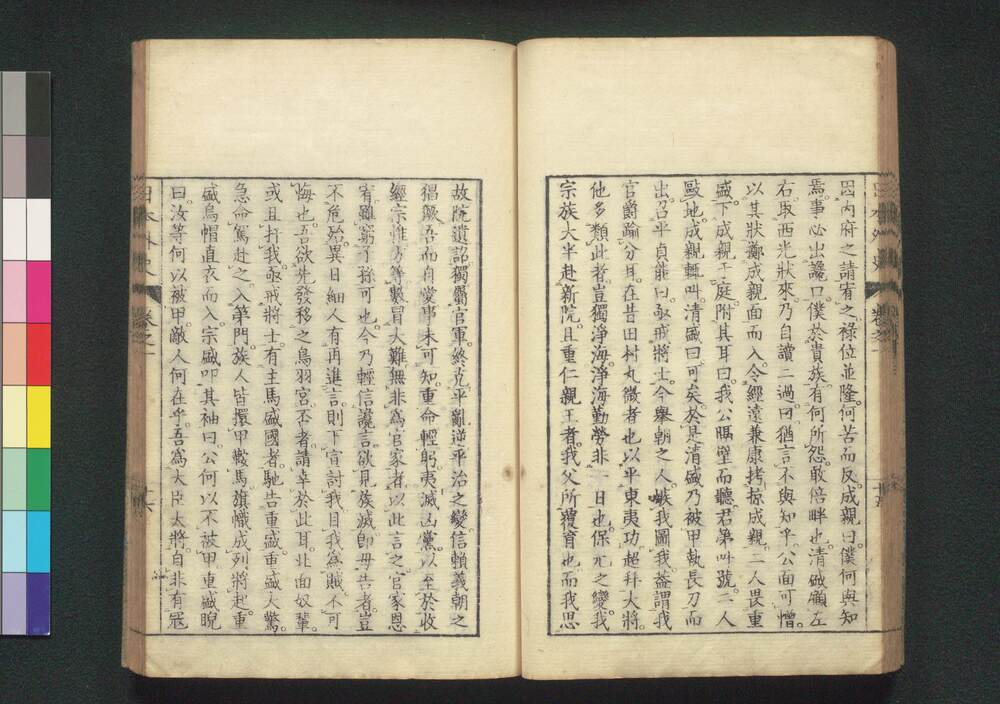 因内府之請宥之祿位並隆何苦而反成親曰僕何與知
焉事必出讒口僕於貴族有何所怨敢倍畔也清盛顧左
右取西光狀來乃自讀二過曰猶言不與知乎公面可憎
以其狀擲成親面而入令經遠兼康拷掠成親二人畏重
盛下成親于庭附其耳曰我公隔壁而聽君第叫號二人
毆地成親輒叫清盛曰可矣於是清盛乃被甲執長刀而
出召平貞能曰亟戒將士今舉朝之人嫉我圖我蓋謂我
官爵踰分耳在昔田村丸微者也以平東夷功超拜大將
他多類此者豈獨淨海淨海勤勞非一日也保元之變我
宗族大半赴新院且重仁親王者我父所覆育也而我思
故院遺詔獨屬官軍終克平亂逆平治之變信賴義朝之
猖獗吾而自愛事未可知重命輕躬夷滅凶黨以至於收
經宗惟方等數冒大難無非為官家者以此言之官家恩
宥雖窮子孫可也今乃輕信讒言欲見族滅即毋告者豈
不危殆異日細人有再進言則下宣討我目我為賊不可
悔也吾欲先發移之鳥羽宮否者請幸於此耳北面奴輩
或且扞我亟戒將士有主馬盛國者馳告重盛重盛大驚
急命駕赴之入第門族人皆擐甲鞍馬旗幟成列將起重
盛烏帽直衣而入宗盛叩其袖曰公何以不被甲重盛睨
曰汝等何以被甲敵人何在乎吾為大臣大將自非有寇
日本外史
卷之一